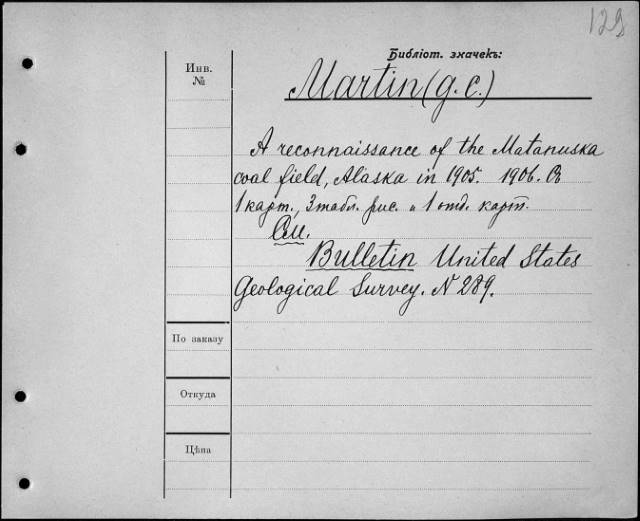 129
Библіот. значекъ:
Инв.
№
Martin (g. c.)
A reconnaissance of the Matanuska
coal field, Alaska in 1905. 1906. Съ
1 карт., 3 табл. рис. и 1 отд. карт.
См.
Bulletin United States
Geological Survey. N 289.
По заказу
Откуда
Цѣна